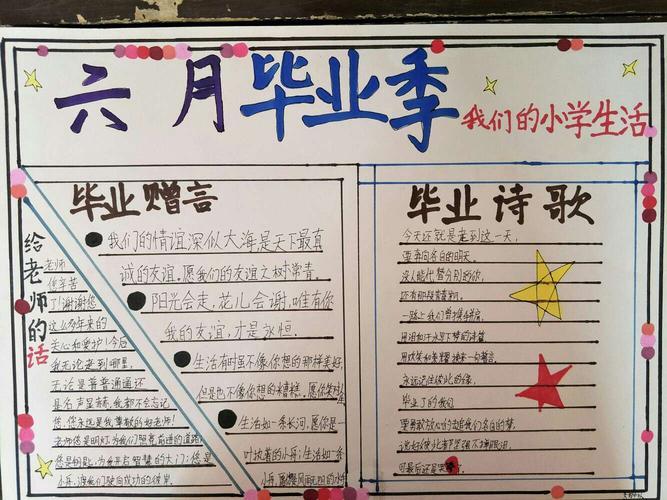 六月毕业季
我们的小学生活
毕业赠言
我们的情谊深似大海是天下最真
诚的友谊.愿我们的友谊之树常青.
阳光会走,花儿会谢,唯有你
我的友谊,才是永恒.
生活有时虽不像你想的那样美好,
但是也不像你想的糟糕.愿你
生活如一条长河,愿你是一
叶执着的小舟;生活如一条
小舟,愿你
给老师的话
老师
您辛苦
了!谢谢您
这么多年来的
关心和爱护!今后
我无论走到哪里,
无论是普普通通还
是名声显赫,我都不会忘记
您,您永远是我尊敬的好老师!
老师您是明灯,为我们照亮前进的道路
您是钥匙,为我开启智慧的大门;您是
小舟,渡我们驶向成功的彼岸.
毕业诗歌
今天还就是走到这一天,
要奔向各自的明天,
没人能代替分别的你,
还有那段青春别,
一路上我们曾携手肩,
用泪和汗水写下梦的诗篇
用欢笑和荣耀换来一句誓言,
永远记住彼此的缘,
毕业了的我们
要勇敢放心的追我们各自的梦
说好彼此都坚强不掉眼泪,
可最后还是哭了.